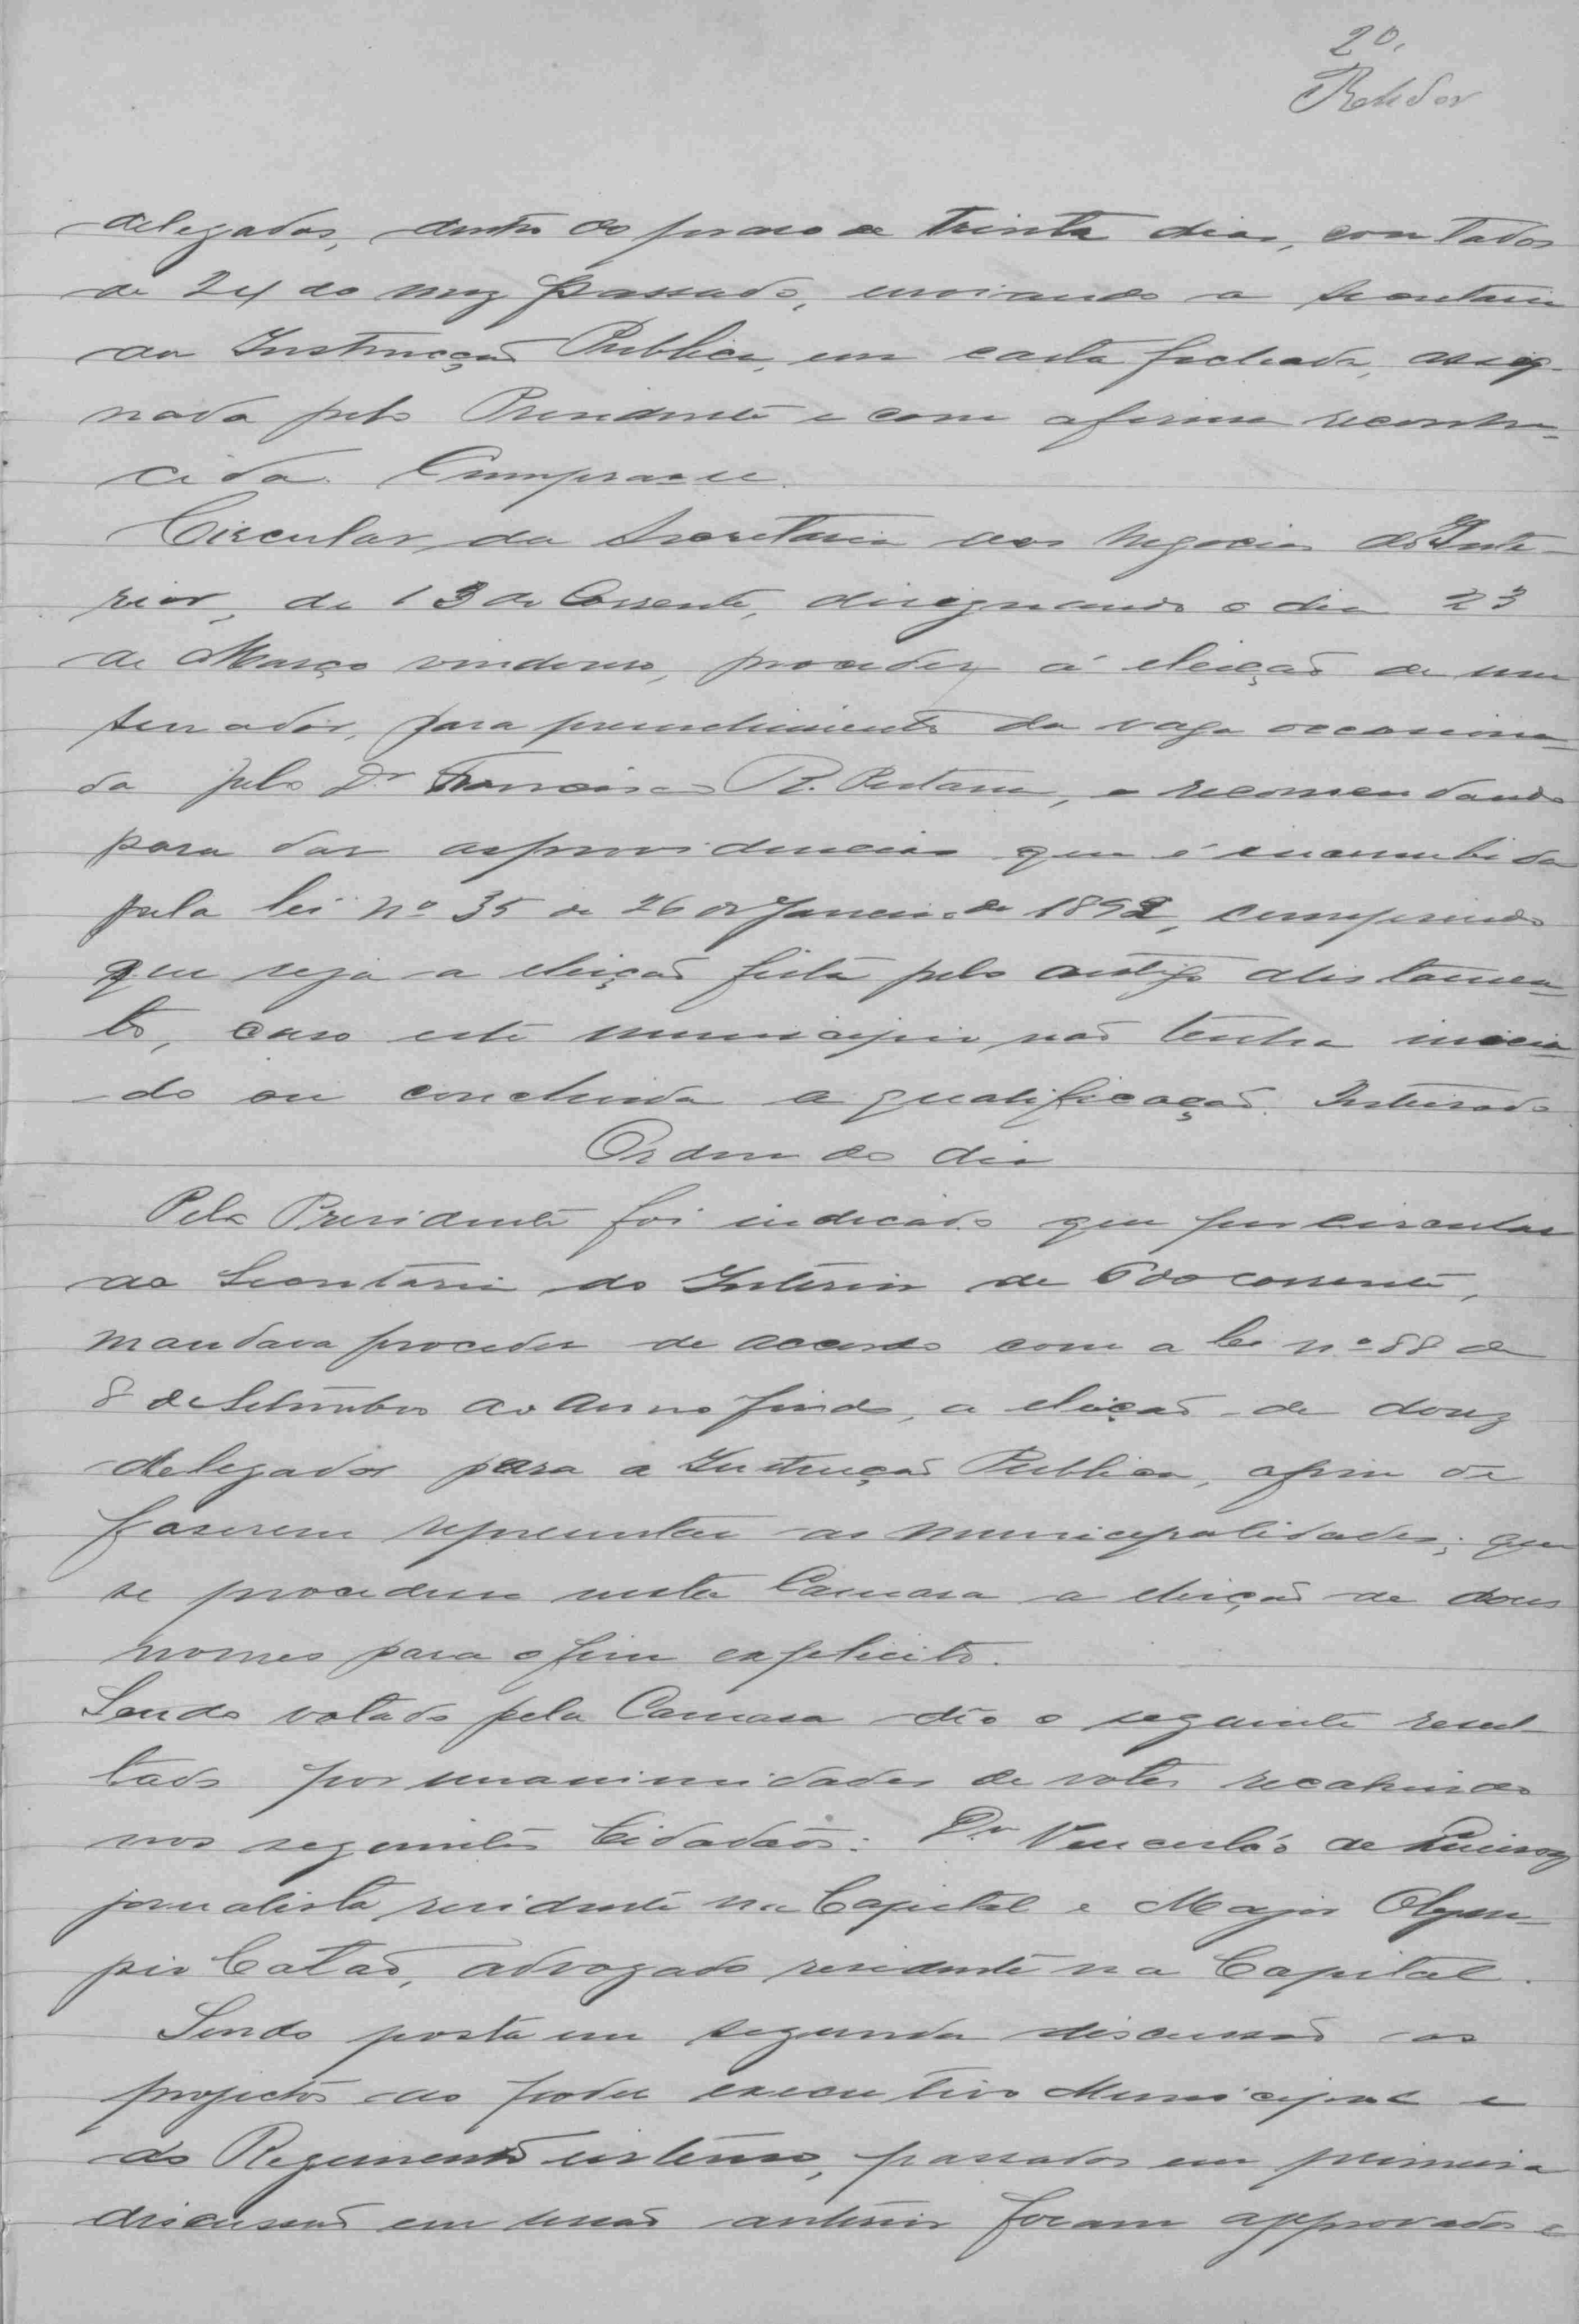 20.
delegados, dentro do praso de trinta dias, contados
de 24 do mez passado, enviando a secretaria
da Instrucção Publica, em carta fechada, assig-
nada pelo Presidente e com a firma reconhe-
cida. Cumpra-se.
Circular da Secretaria dos Negocios do Inte-
rior, de 13 do Corrente, designando o dia 23
de Março vindouro, proceder á eleição de um
senador, para preenchimento da vaga occasiona-
da pelo Dr Francisco R. Pestana, e recomendando
para dar as providencias que é incumbida
pela lei nº 35 de 26 de Janeiro de 1892, cumprindo
que seja a eleição feita pelo antigo alistamen-
to, caso este municipio não tenha inicia-
do ou concluida a qualificação. Inteirado
Ordem do dia
Pelo Presidente foi indicado que por circular
do Secretario do Interior de 6 do corrente,
mandava proceder de accordo com a lei nº 88 de
8 de Setembro do anno findo, a eleição de douz
delegados para a Instrucção Publica, afim de
faserem representar as municipalidades; que
se procedesse nesta Camara a eleição de dous
nomes para o fim explicito.
Sendo votado pela Camara deo o seguinte resul-
tado por unanimidades de votos recahindo
nos seguintes Cidadãos: Dr Venceslão de Queiroz
jornalista residente na Capital e Major Olym-
pio Catão, advogado residente na Capital.
Sendo posta em segunda discussão os
projectos do poder executivo Municipal e
do Regimento interno, passados em primeira
discussão em sessão anterior foram approvados e